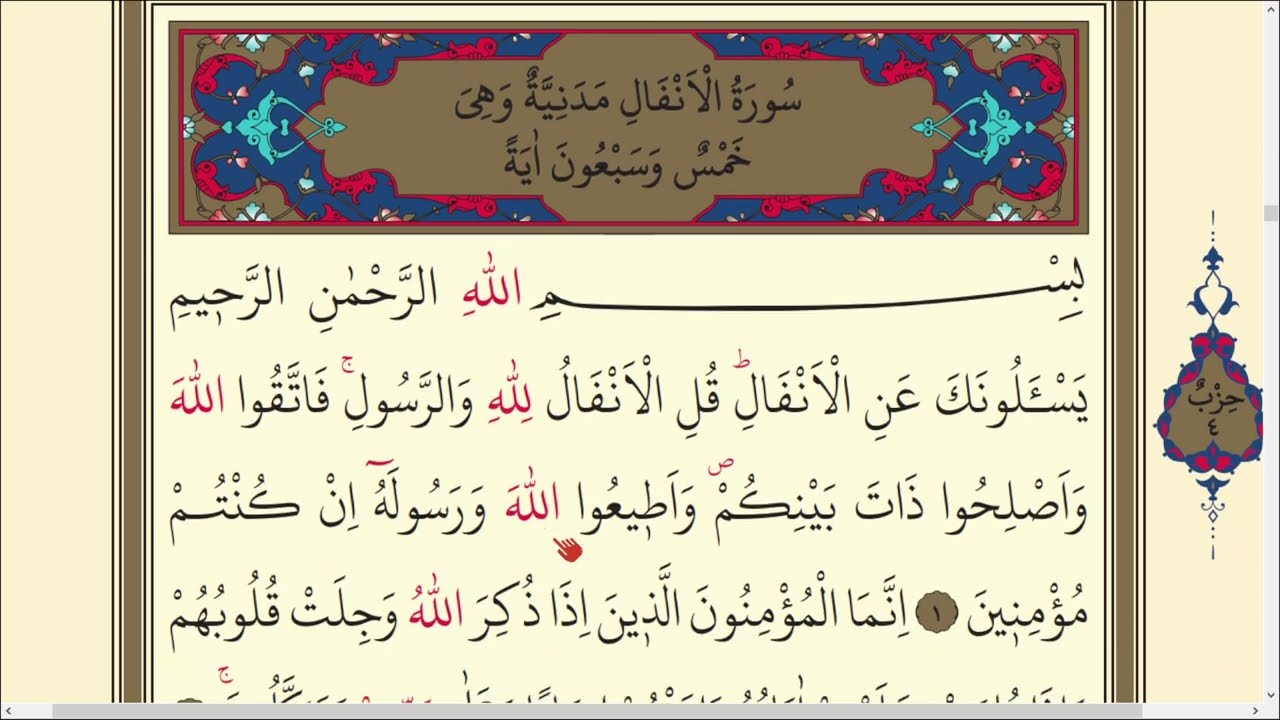 سُورَةُ الْاَنْفَالِ مَدَنِيَّةٌ وَهِىَ
خَمْسٌ وَسَبْعُونَ اٰيَةً
بِسْمِ اللّٰهِ الرَّحْمٰنِ الرَّح۪يمِ
يَسْـَٔلُونَكَ عَنِ الْاَنْفَالِۜ قُلِ الْاَنْفَالُ لِلّٰهِ وَالرَّسُولِۚ فَاتَّقُوا اللّٰهَ
وَاَصْلِحُوا ذَاتَ بَيْنِكُمْۖ وَاَط۪يعُوا اللّٰهَ وَرَسُولَهُٓ اِنْ كُنْتُمْ
مُؤْمِن۪ينَ ١ اِنَّمَا الْمُؤْمِنُونَ الَّذ۪ينَ اِذَا ذُكِرَ اللّٰهُ وَجِلَتْ قُلُوبُهُمْ
حِزْبٌ
٤